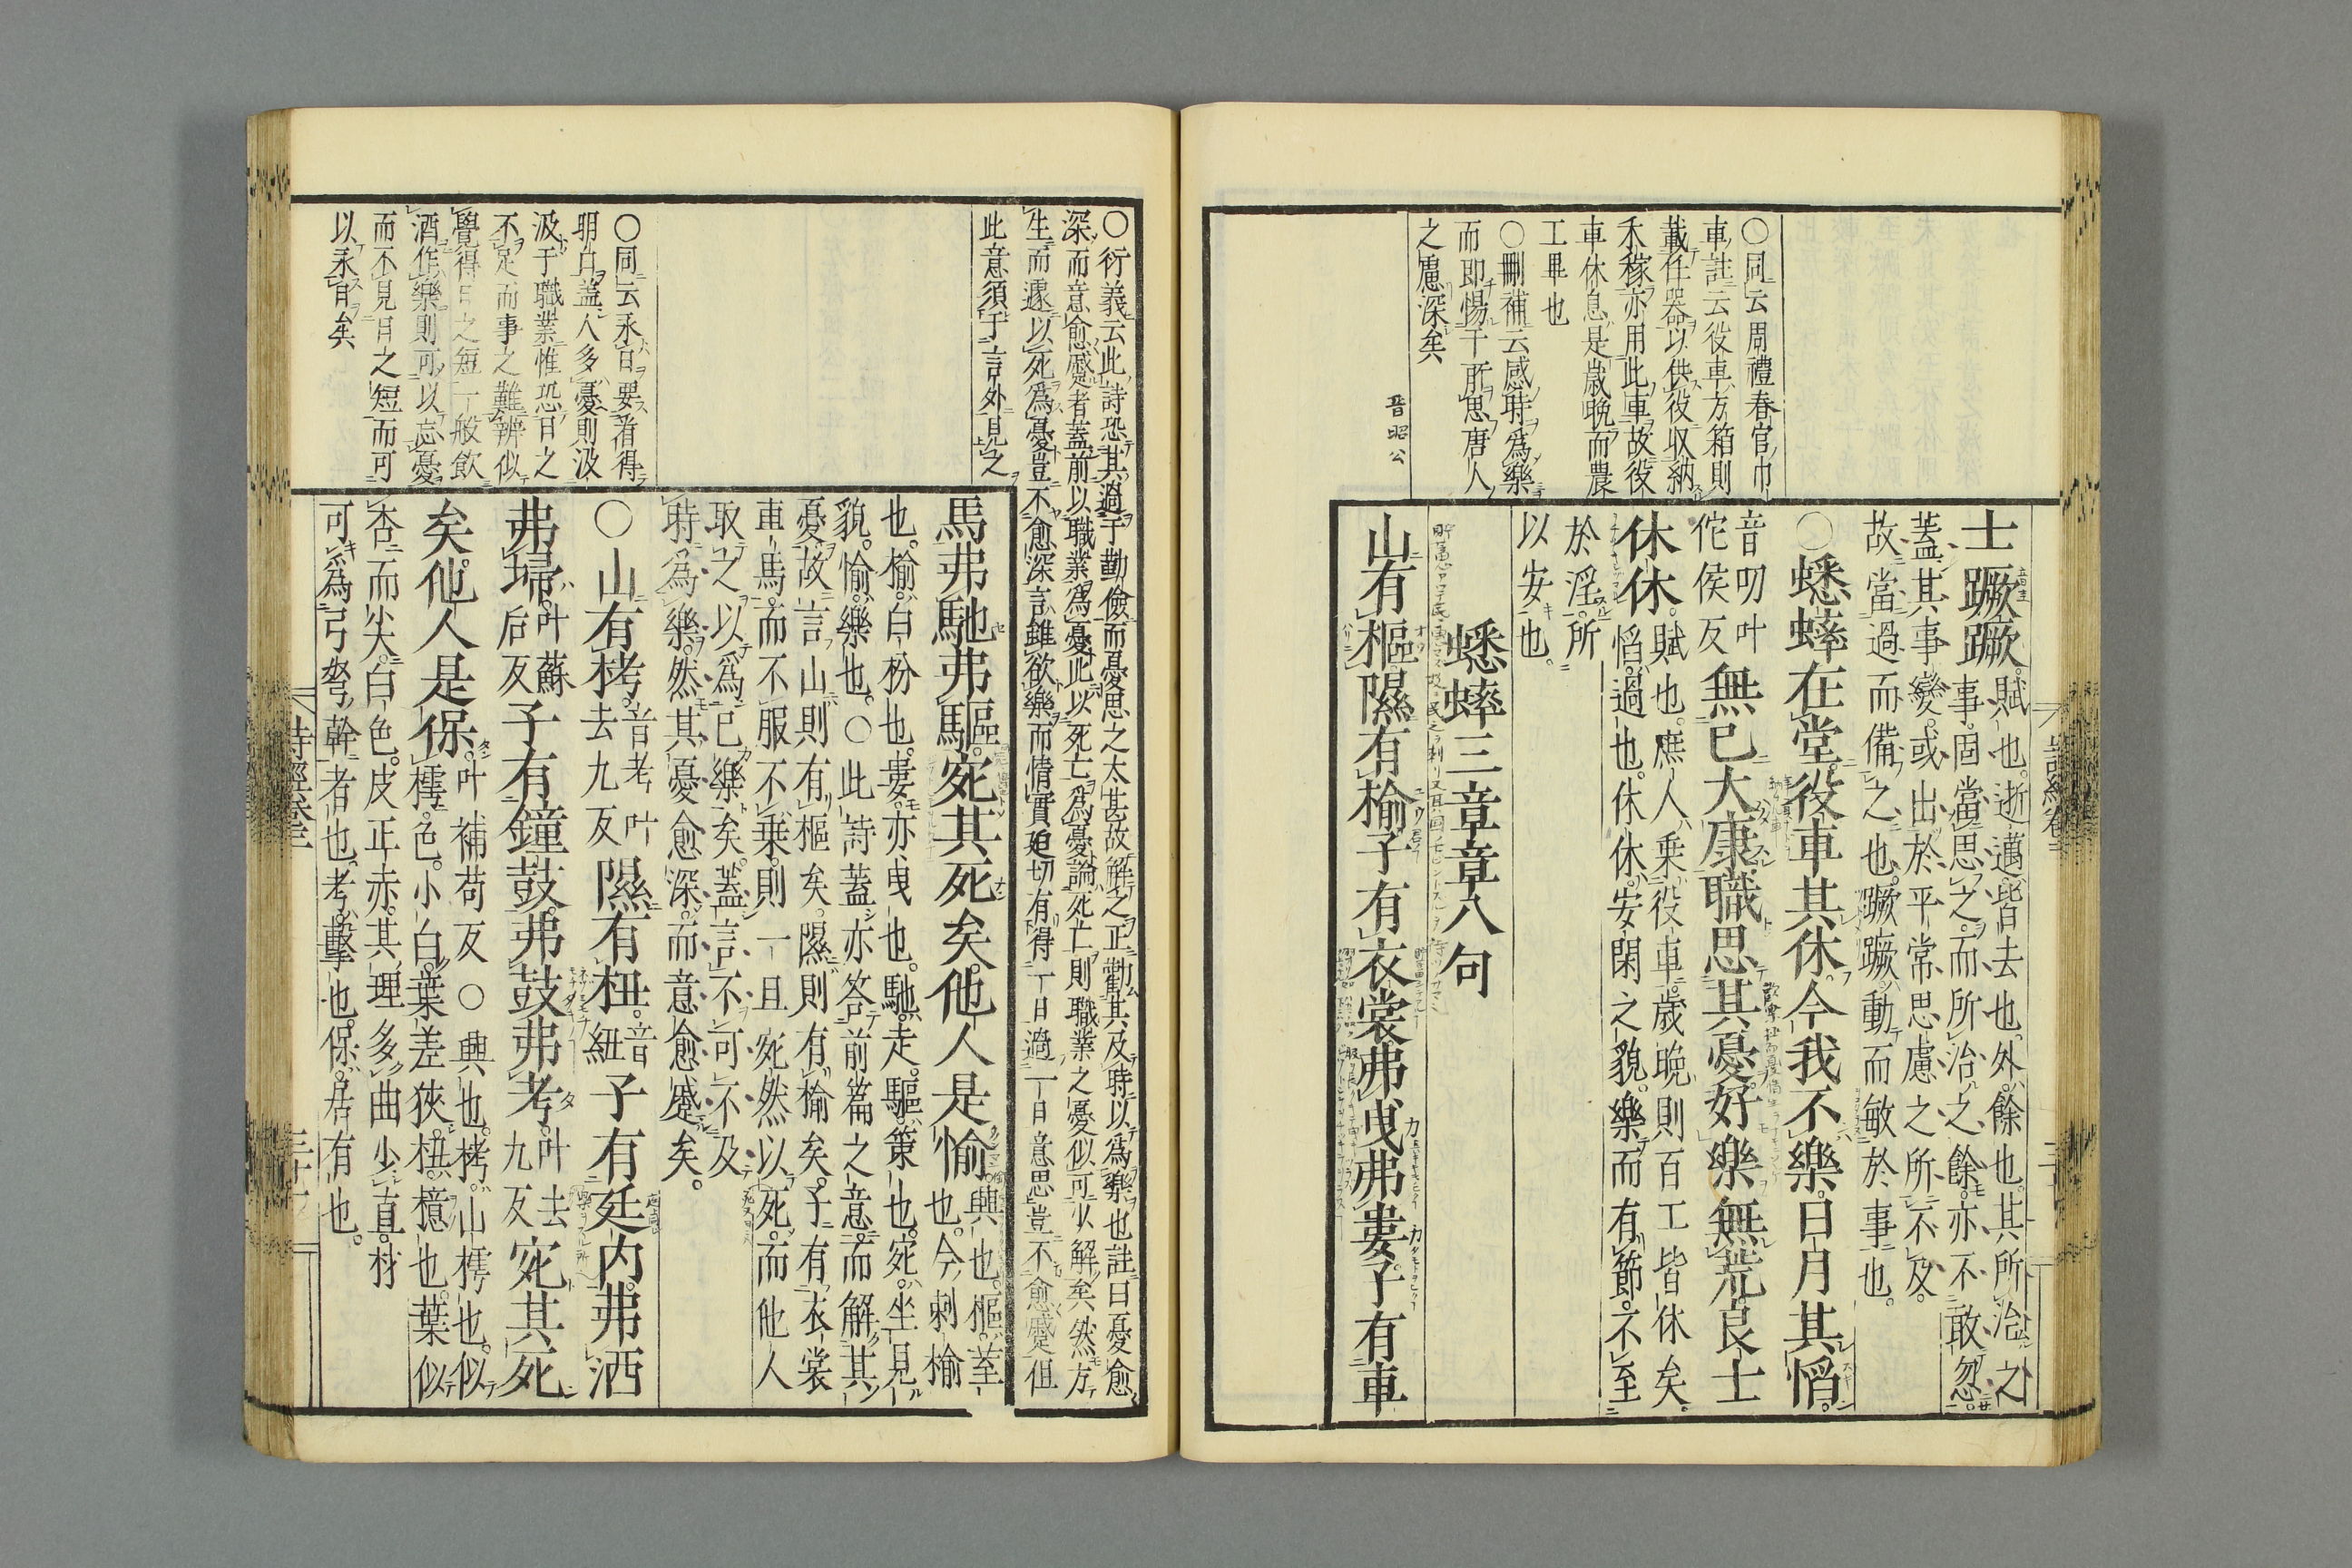 ○同云周禮春官巾
車註云役車方箱則
載任器以供役収納
禾稼亦用此車故役
車休息是歳晩而農
工畢也
○刪補云感時爲樂
而即惕于所思唐人
之慮深矣
晉昭公
士蹶蹶賦也逝邁皆去也外餘也其所治之
事固當思之而所治之餘亦不敢忽
蓋其事變或出於平常思慮之所不及
故當過而備之也蹶蹶動而敏於事也
○蟋蟀在堂役車其休今我不樂日月其慆
音叨叶
佗侯反
無已大康職思其憂好樂無荒良士
休休賦也庶人乗役車歳晩則百工皆休矣
慆過也休休安閑之貌樂而有節不至
於淫所
以安也
蟋蟀三章章八句
山有樞隰有榆子有衣裳弗曳弗婁子有車
○衍義云此詩恐其過于勤儉而憂思之太甚故解之正勸其及時以爲樂也註曰憂愈
深而意愈蹙者蓋前以職業爲憂此以死亡爲憂論死亡則職業之憂似可以解矣然方
生而遽以死爲憂豈不愈深言雖欲樂而情實廹切有得一日過一日意思豈不愈蹙但
此意須于言外見之
○同云永日要看得
明白蓋人多憂則汲
汲于職業惟恐日之
不足而事之難辨似
覺得日之短一般飲
酒作樂則可以忘憂
而不見日之短而可
以永日矣
馬弗馳弗驅宛其死矣他人是愉興也樞荎
也今刺榆
也榆白枌也婁亦曳也馳走驅策也宛坐見
貌愉樂也○此詩蓋亦答前篇之意而解其
憂故言山則有樞矣隰則有榆矣子有衣裳
車馬而不服不乗則一旦宛然以死而他人
取之以爲己樂矣蓋言不可不及
時為樂然其憂愈深而意愈蹙矣
○山有栲音考叶
去九反
隰有杻音
紐
子有廷内弗洒
弗埽叶蘇
后反
子有鐘鼓弗鼓弗考叶去
九反
宛其死
矣他人是保叶補苟反○興也栲山樗也似
樗色小白葉差狹杻檍也葉似
杏而尖白色皮正赤其理多曲少直材
可為弓弩幹者也考擊也保居有也
詩經卷三